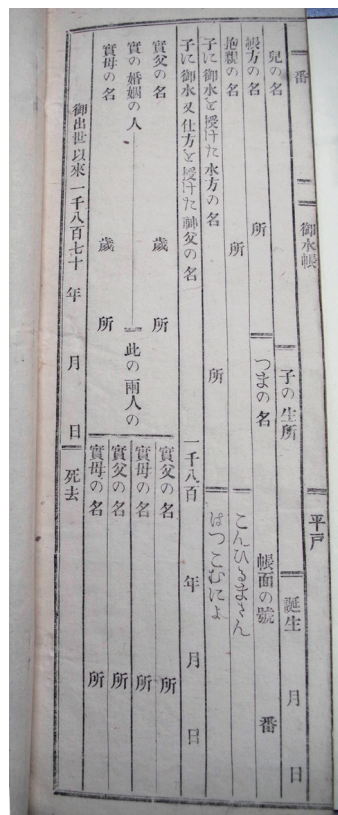 一 番 二 一 御水帳 平戸
兒の名 子の生所 誕生 月 日
帳方の名 所 つまの名 帳面の號 番
抱親の名 所 こんひるまさん
子に御水を授けた水方の名 所 ばつこむによ
子に御水又仕方を授けた神父の名 一千八百 年 月 日
實父の名 歲 所
實の婚姻の人 此の兩人の
實母の名 歲 所
實父の名 所
實母の名 所
實父の名 所
實母の名 所
御出世以來一千八百七十 年 月 日 死去